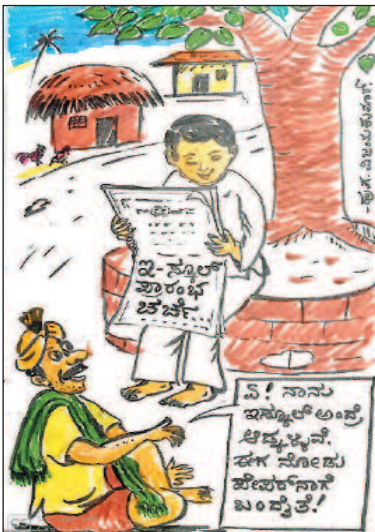 ಇ-ಸ್ಕೂಲ್
ಪ್ರಾರಂಭ
ಚರ್ಚೆ...
ಏ! ನಾನು
ಇಸ್ಕೂಲ್ ಅಂದ್ರೆ
ಈಗ ನೋಡು
ಪೇಪರ್‌ನಾಗೆ
ಬಂದೈತೆ!